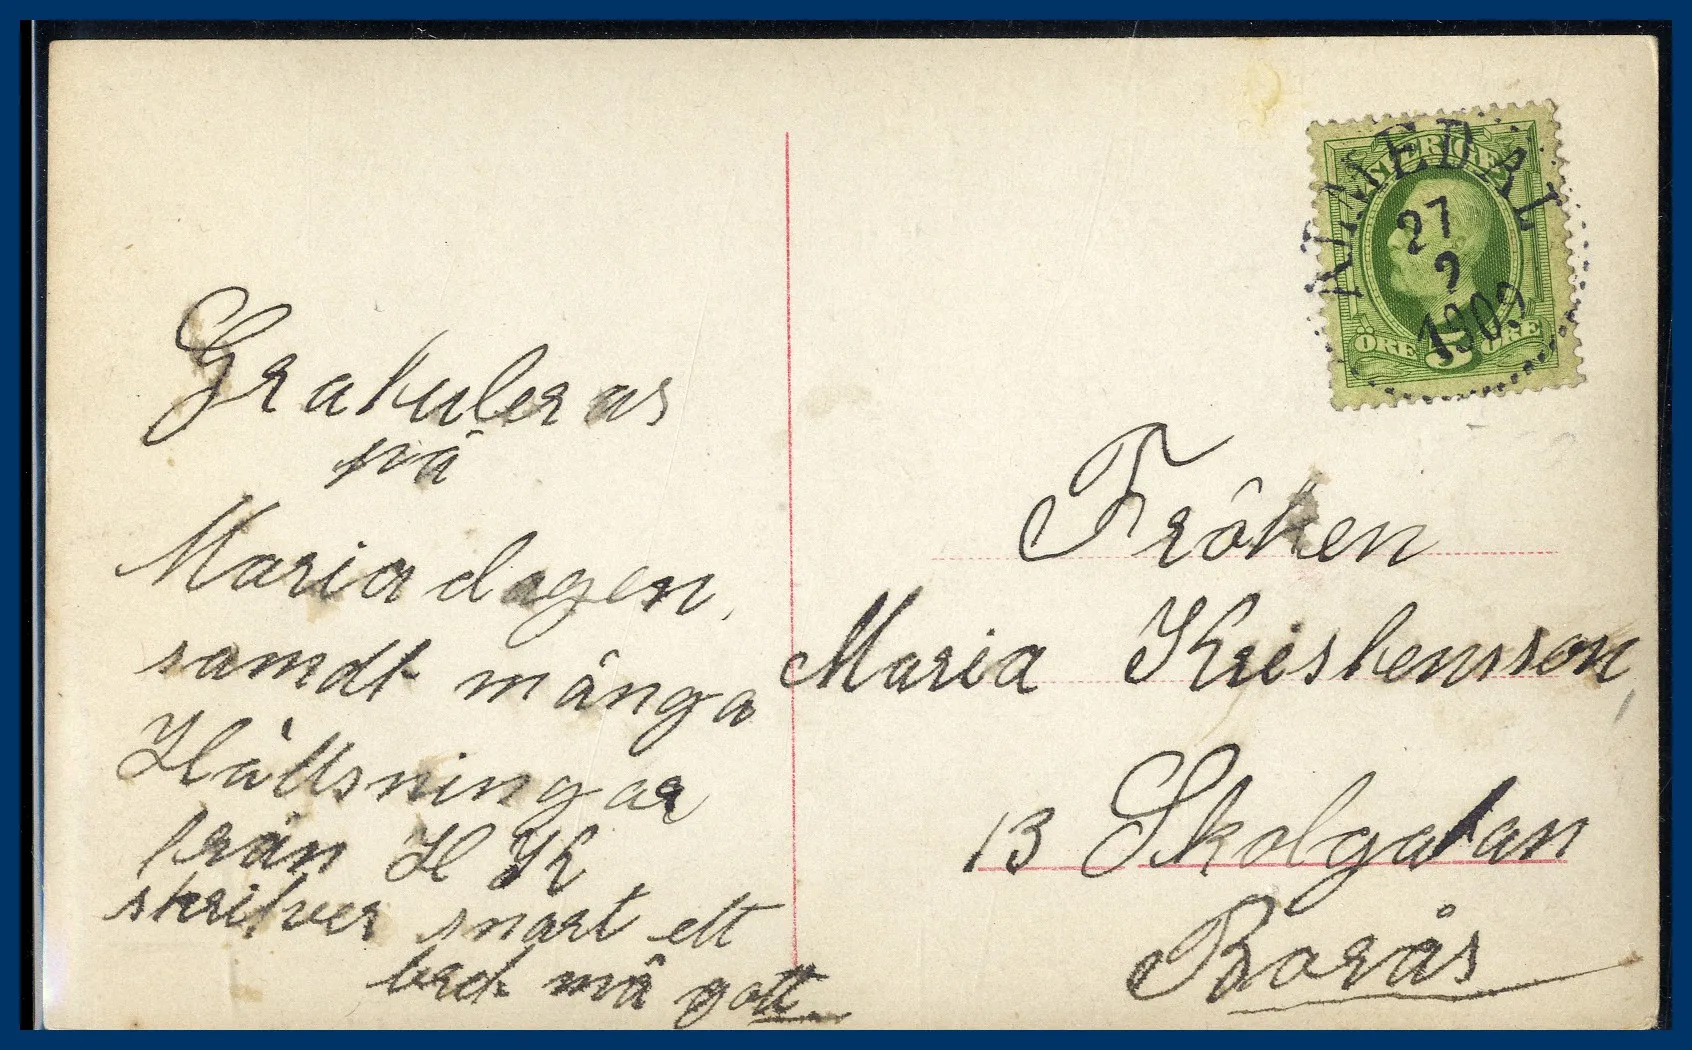 Grakuleras
på
Mariadagen,
samdt många
Hällsningar
från H K
skrifver snart ett
bref må gott
SVERIGE
27
2
1909
ÖRE 5 ÖRE
Fröken
Maria Kristensson,
13 Skolgatan
Borås